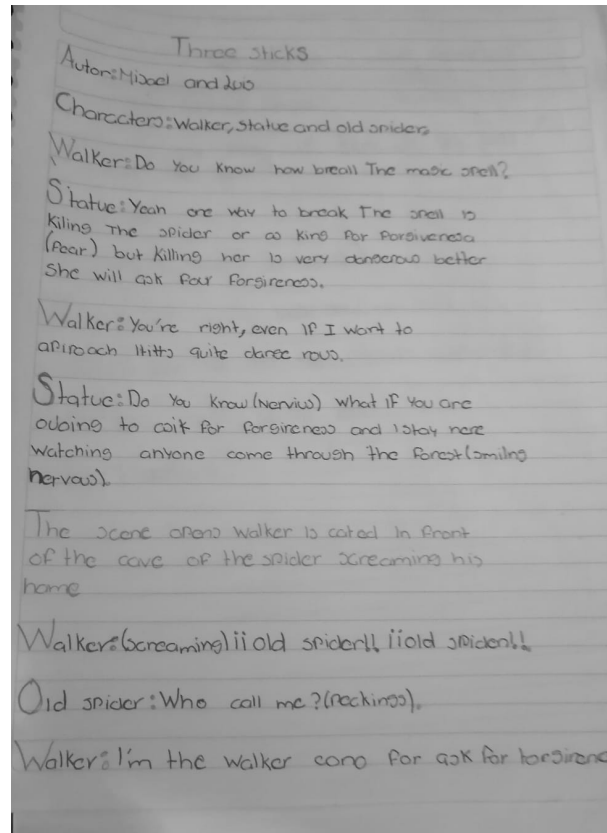 Three sticks
Autor: Misael and Luis
Characters: Walker, Statue and old spider
Walker: Do You Know how breall The magic spell?
Statue: Yeah one way to break The spell is
Kiling The spider or as king for forgiveness
(Fear) but killing her is very dangerous better
She will ask four forgireness.
Walker: You're right, even If I want to
apiroach quite rous.
Statue: Do You Know (Nervius) what if You are
to for forgireness and I stay here
watching anyone come through the forest (smiling
nervous).
The scene opens Walker is cated In front
of the cave of the spider screaming his
home
Walker: (screaming) ¡¡old spider!! ¡¡old spider!!
Old spider: Who call me? .
Walker: I'm the walker for ask for